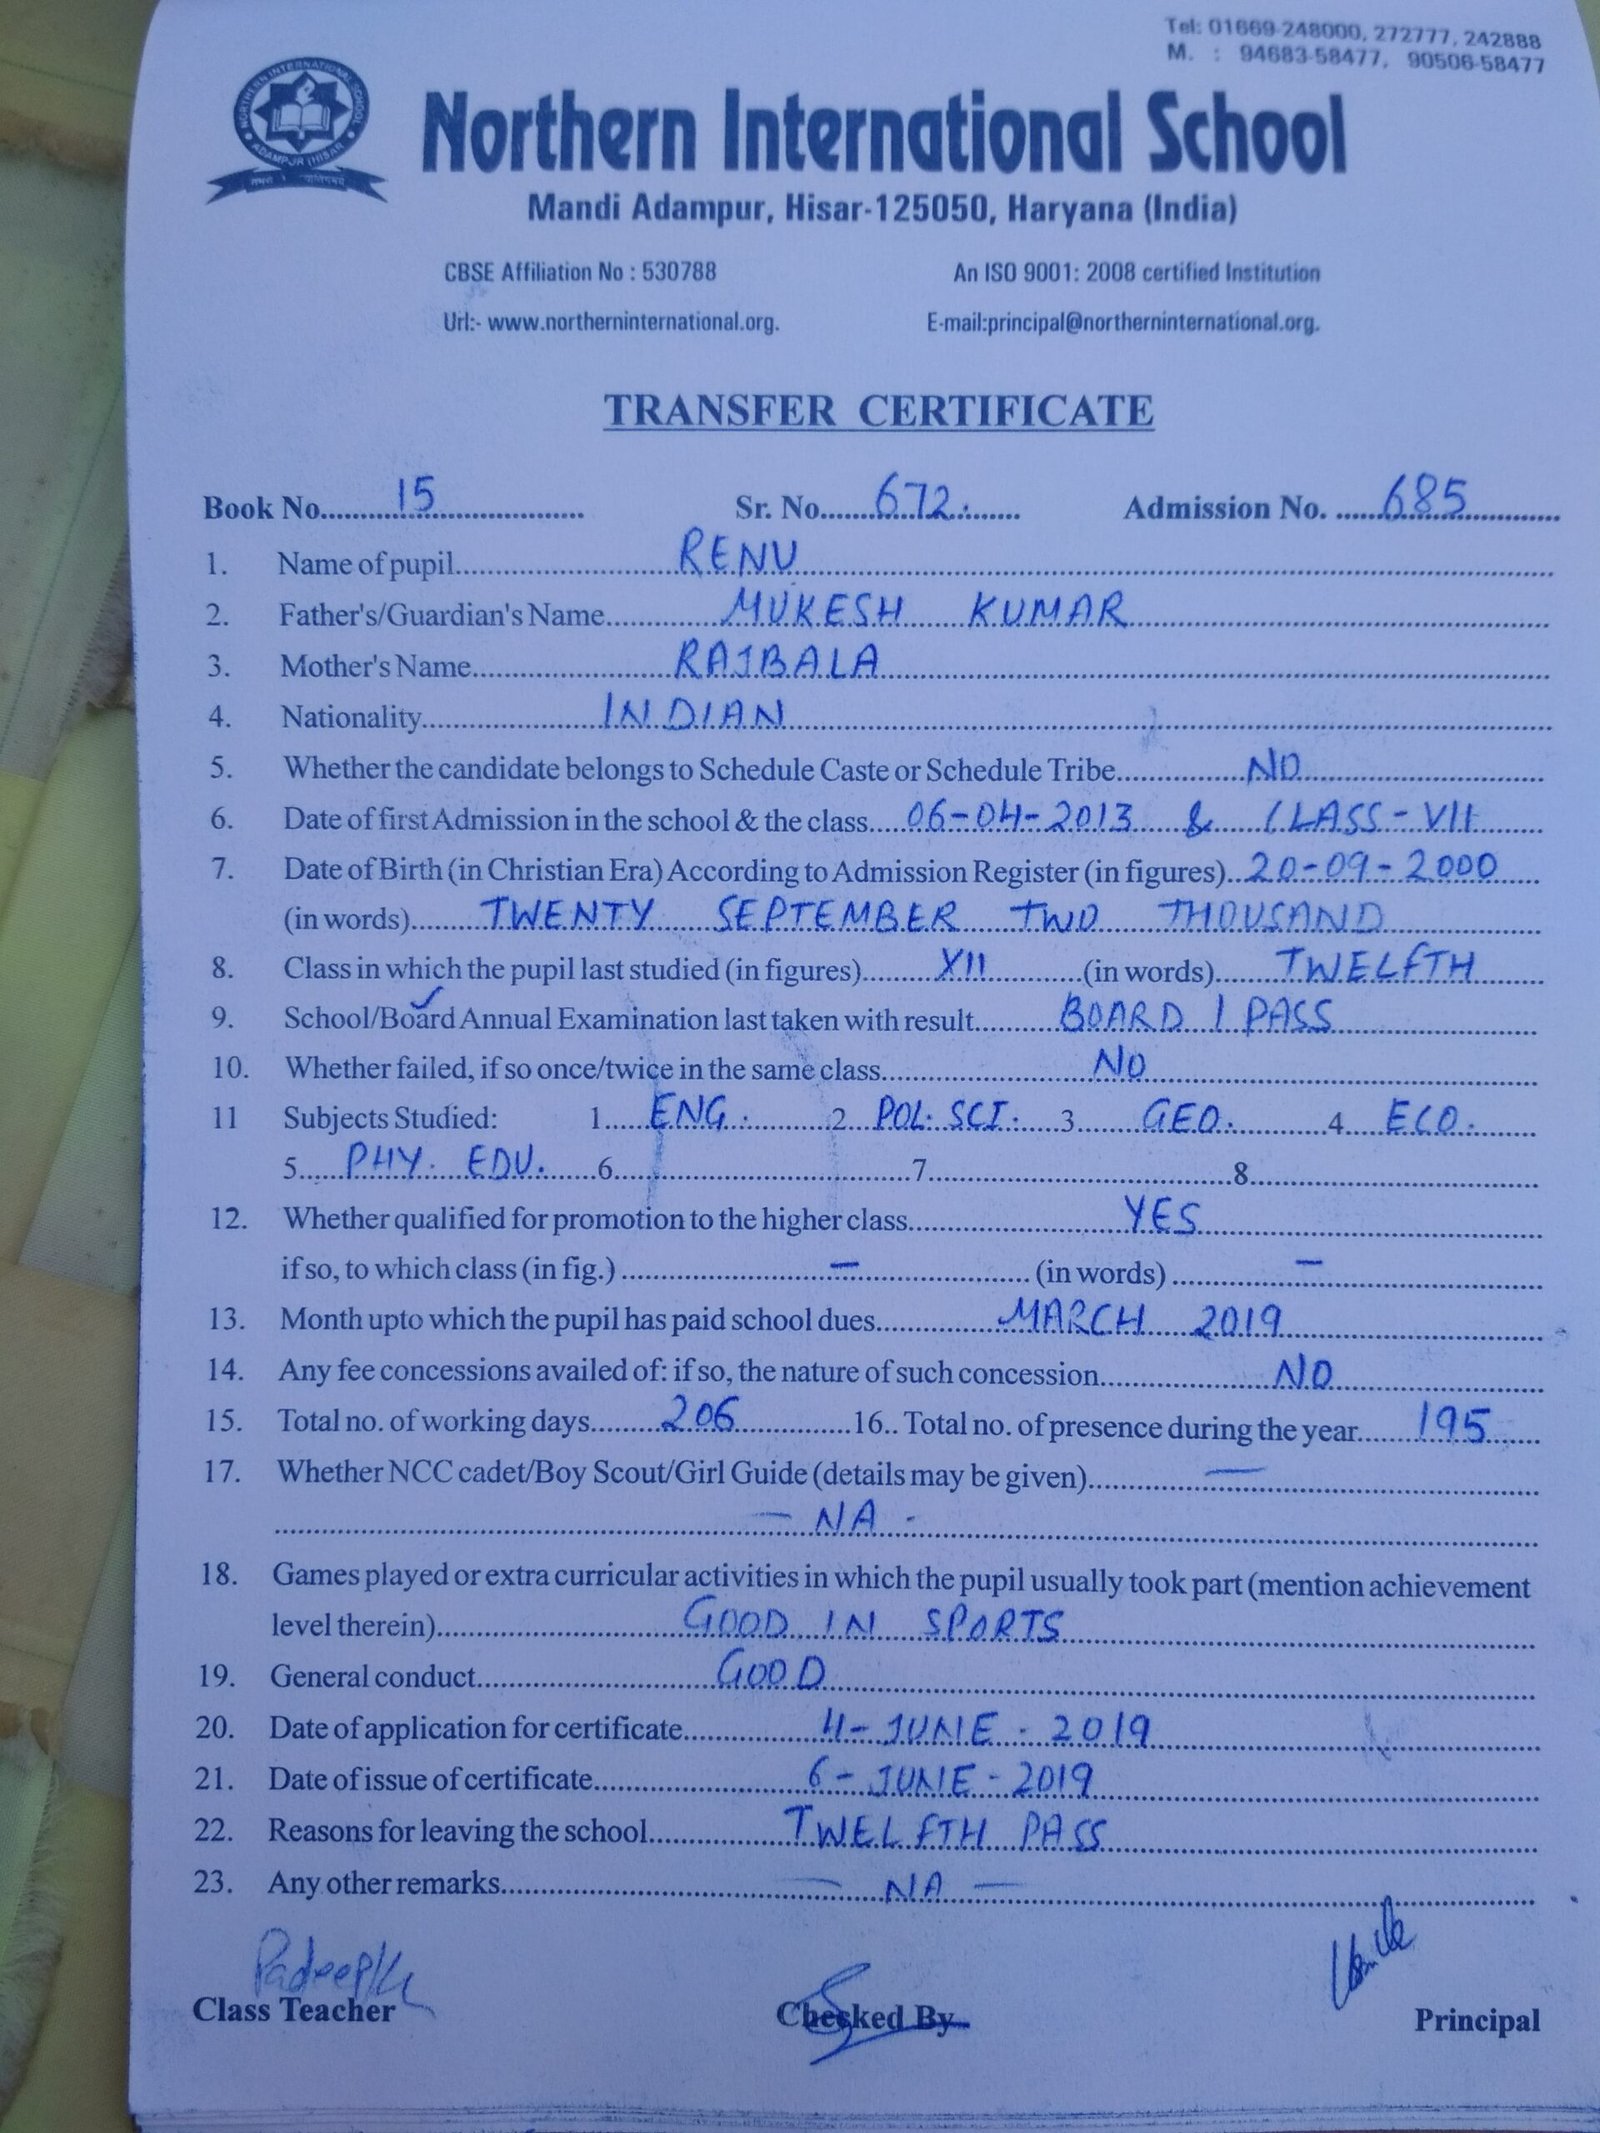 Tel: 01669-248000, 272777, 242888
M. : 94683-58477, 90506-58477
NORTHERN INTERNATIONAL SCHOOL
ADAMPUR (HISAR)
Northern International School
Mandi Adampur, Hisar-125050, Haryana (India)
CBSE Affiliation No : 530788 An ISO 9001: 2008 certified Institution
Url:- www.northerninternational.org. E-mail:principal@northerninternational.org.
TRANSFER CERTIFICATE
Book No. 15 Sr. No. 672. Admission No. 685
1. Name of pupil RENU
2. Father's/Guardian's Name MUKESH KUMAR
3. Mother's Name RAJBALA
4. Nationality INDIAN
5. Whether the candidate belongs to Schedule Caste or Schedule Tribe NO
6. Date of first Admission in the school & the class 06-04-2013 & CLASS-VII
7. Date of Birth (in Christian Era) According to Admission Register (in figures) 20-09-2000
(in words) TWENTY SEPTEMBER TWO THOUSAND
8. Class in which the pupil last studied (in figures) XII (in words) TWELFTH
9. School/Board Annual Examination last taken with result BOARD / PASS
10. Whether failed, if so once/twice in the same class NO
11 Subjects Studied: 1 ENG. 2 POL. SCI. 3 GEO. 4 ECO.
5 PHY. EDU. 6 7 8
12. Whether qualified for promotion to the higher class YES
if so, to which class (in fig.) — (in words) —
13. Month upto which the pupil has paid school dues MARCH 2019
14. Any fee concessions availed of: if so, the nature of such concession NO
15. Total no. of working days 206 16.. Total no. of presence during the year 195
17. Whether NCC cadet/Boy Scout/Girl Guide (details may be given) —
— NA -
18. Games played or extra curricular activities in which the pupil usually took part (mention achievement
level therein) GOOD IN SPORTS
19. General conduct GOOD
20. Date of application for certificate 4-JUNE-2019
21. Date of issue of certificate 6-JUNE-2019
22. Reasons for leaving the school TWELFTH PASS
23. Any other remarks — NA —
Class Teacher Checked By Principal